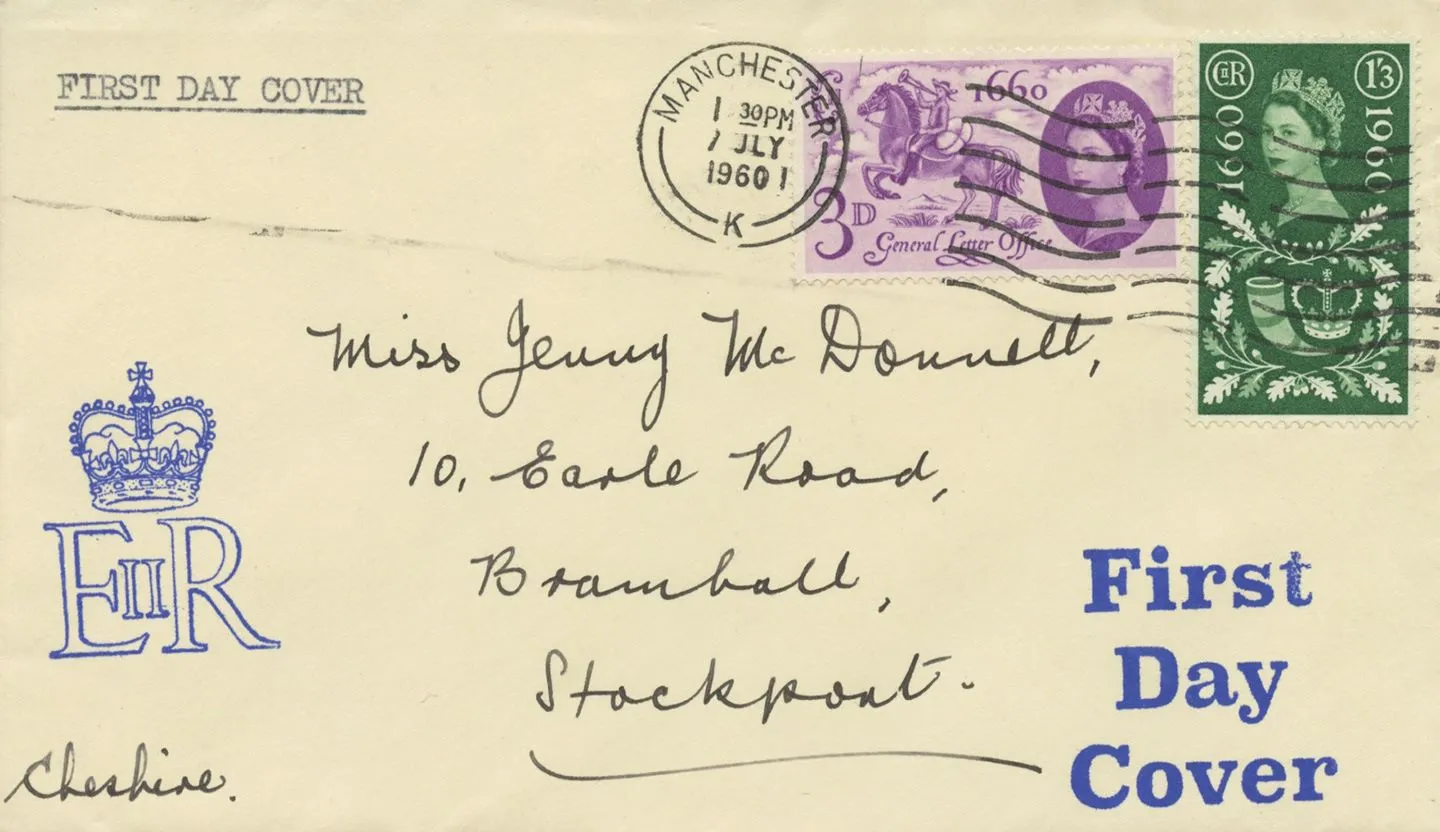 FIRST DAY COVER
MANCHESTER
1 30PM
7 JLY
1960 1
K
1660
3D
General Letter Office
EIIR
1'3
1660
1960
Miss Jenny McDonnell,
10, Earle Road,
Bramhall,
Stockport.
Cheshire.
EIIR
First
Day
Cover